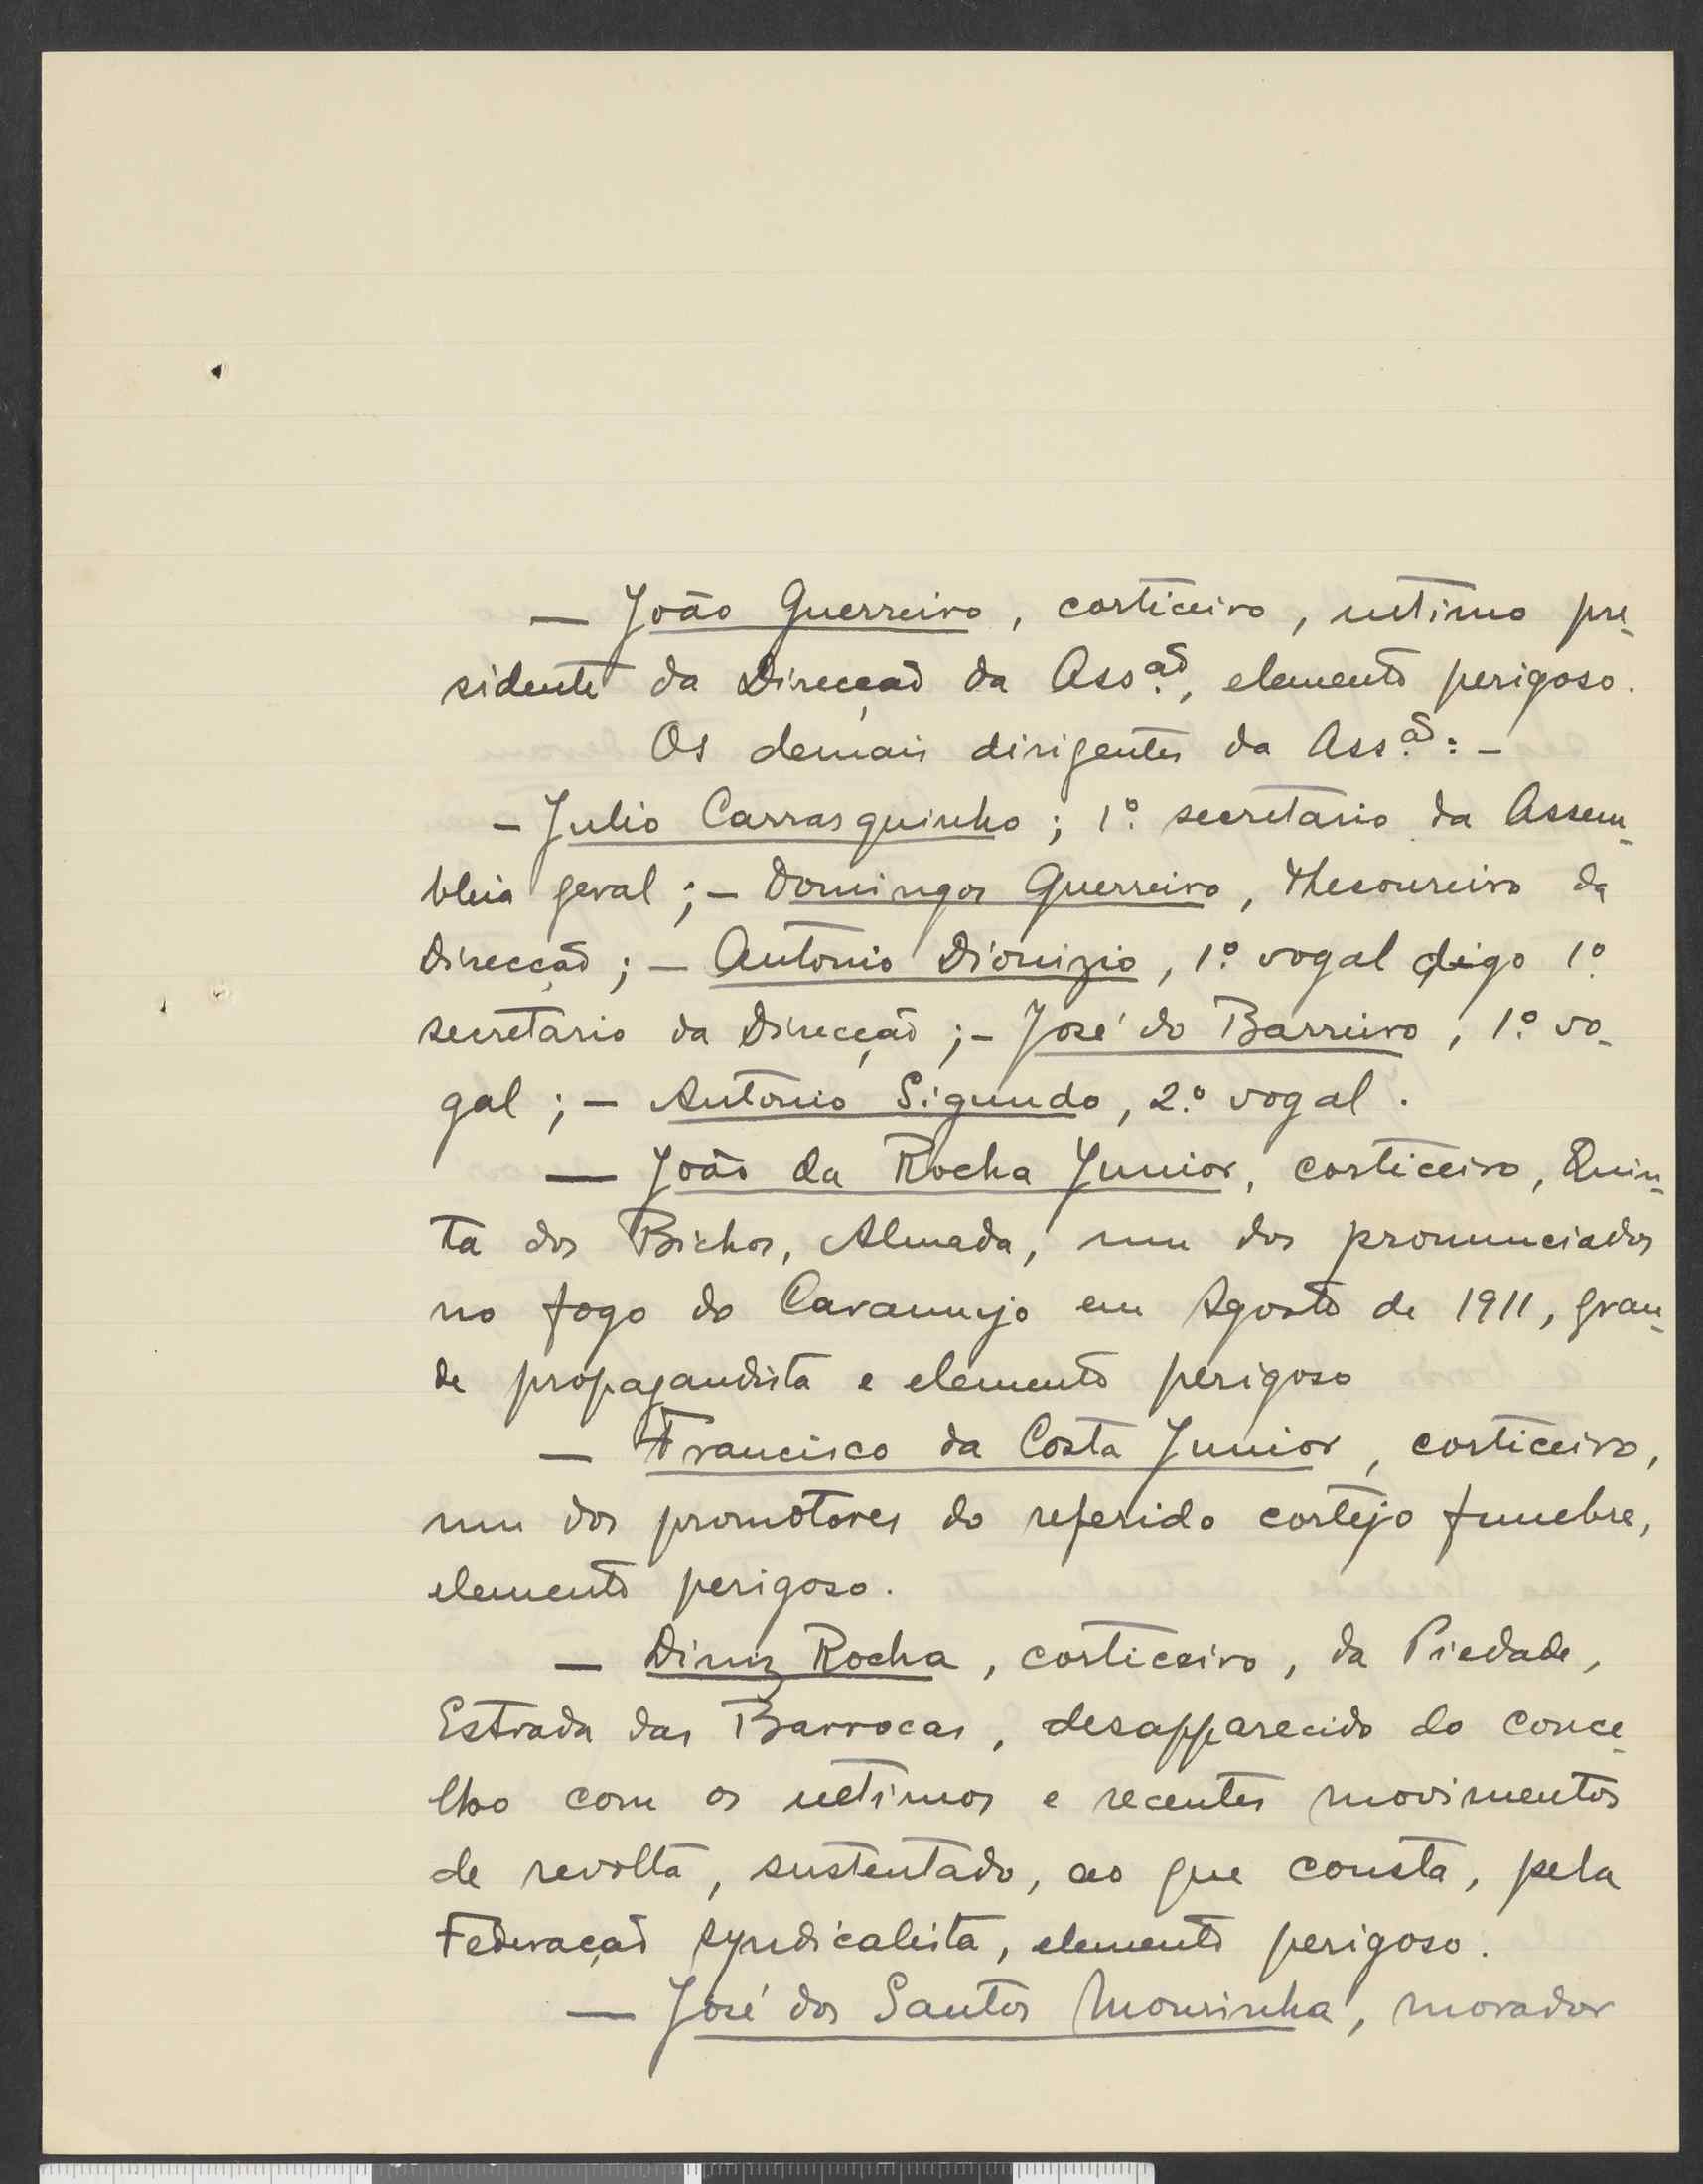 — João Guerreiro, corticeiro, ultimo pre-
sidente da Direcção da Asso.ão, elemento perigoso.
Os demais dirigentes da Ass.ão: -
- Julio Carrasquinho; 1.º secretario da Assem-
bleia geral; - Domingos Guerreiro, thesoureiro da
Direcção; - Antonio Dionizio, 1.º vogal digo 1.º
secretario da Direcção; - José do Barreiro, 1.º vo-
gal; - Antonio Sigundo, 2.º vogal.
— João da Rocha Junior, corticeiro, Quin-
ta dos Bichos, Almada, um dos pronunciados
no fogo do Caramujo em Agosto de 1911, gran-
de propagandista e elemento perigoso
— Francisco da Costa Junior, corticeiro,
um dos promotores do referido cortejo funebre,
elemento perigoso.
— Diniz Rocha, corticeiro, da Piedade,
Estrada das Barrocas, desapparecido do conce-
lho com os ultimos e recentes movimentos
de revolta, sustentado, ao que consta, pela
Federação syndicalista, elemento perigoso.
— José dos Santos Mourinha, morador